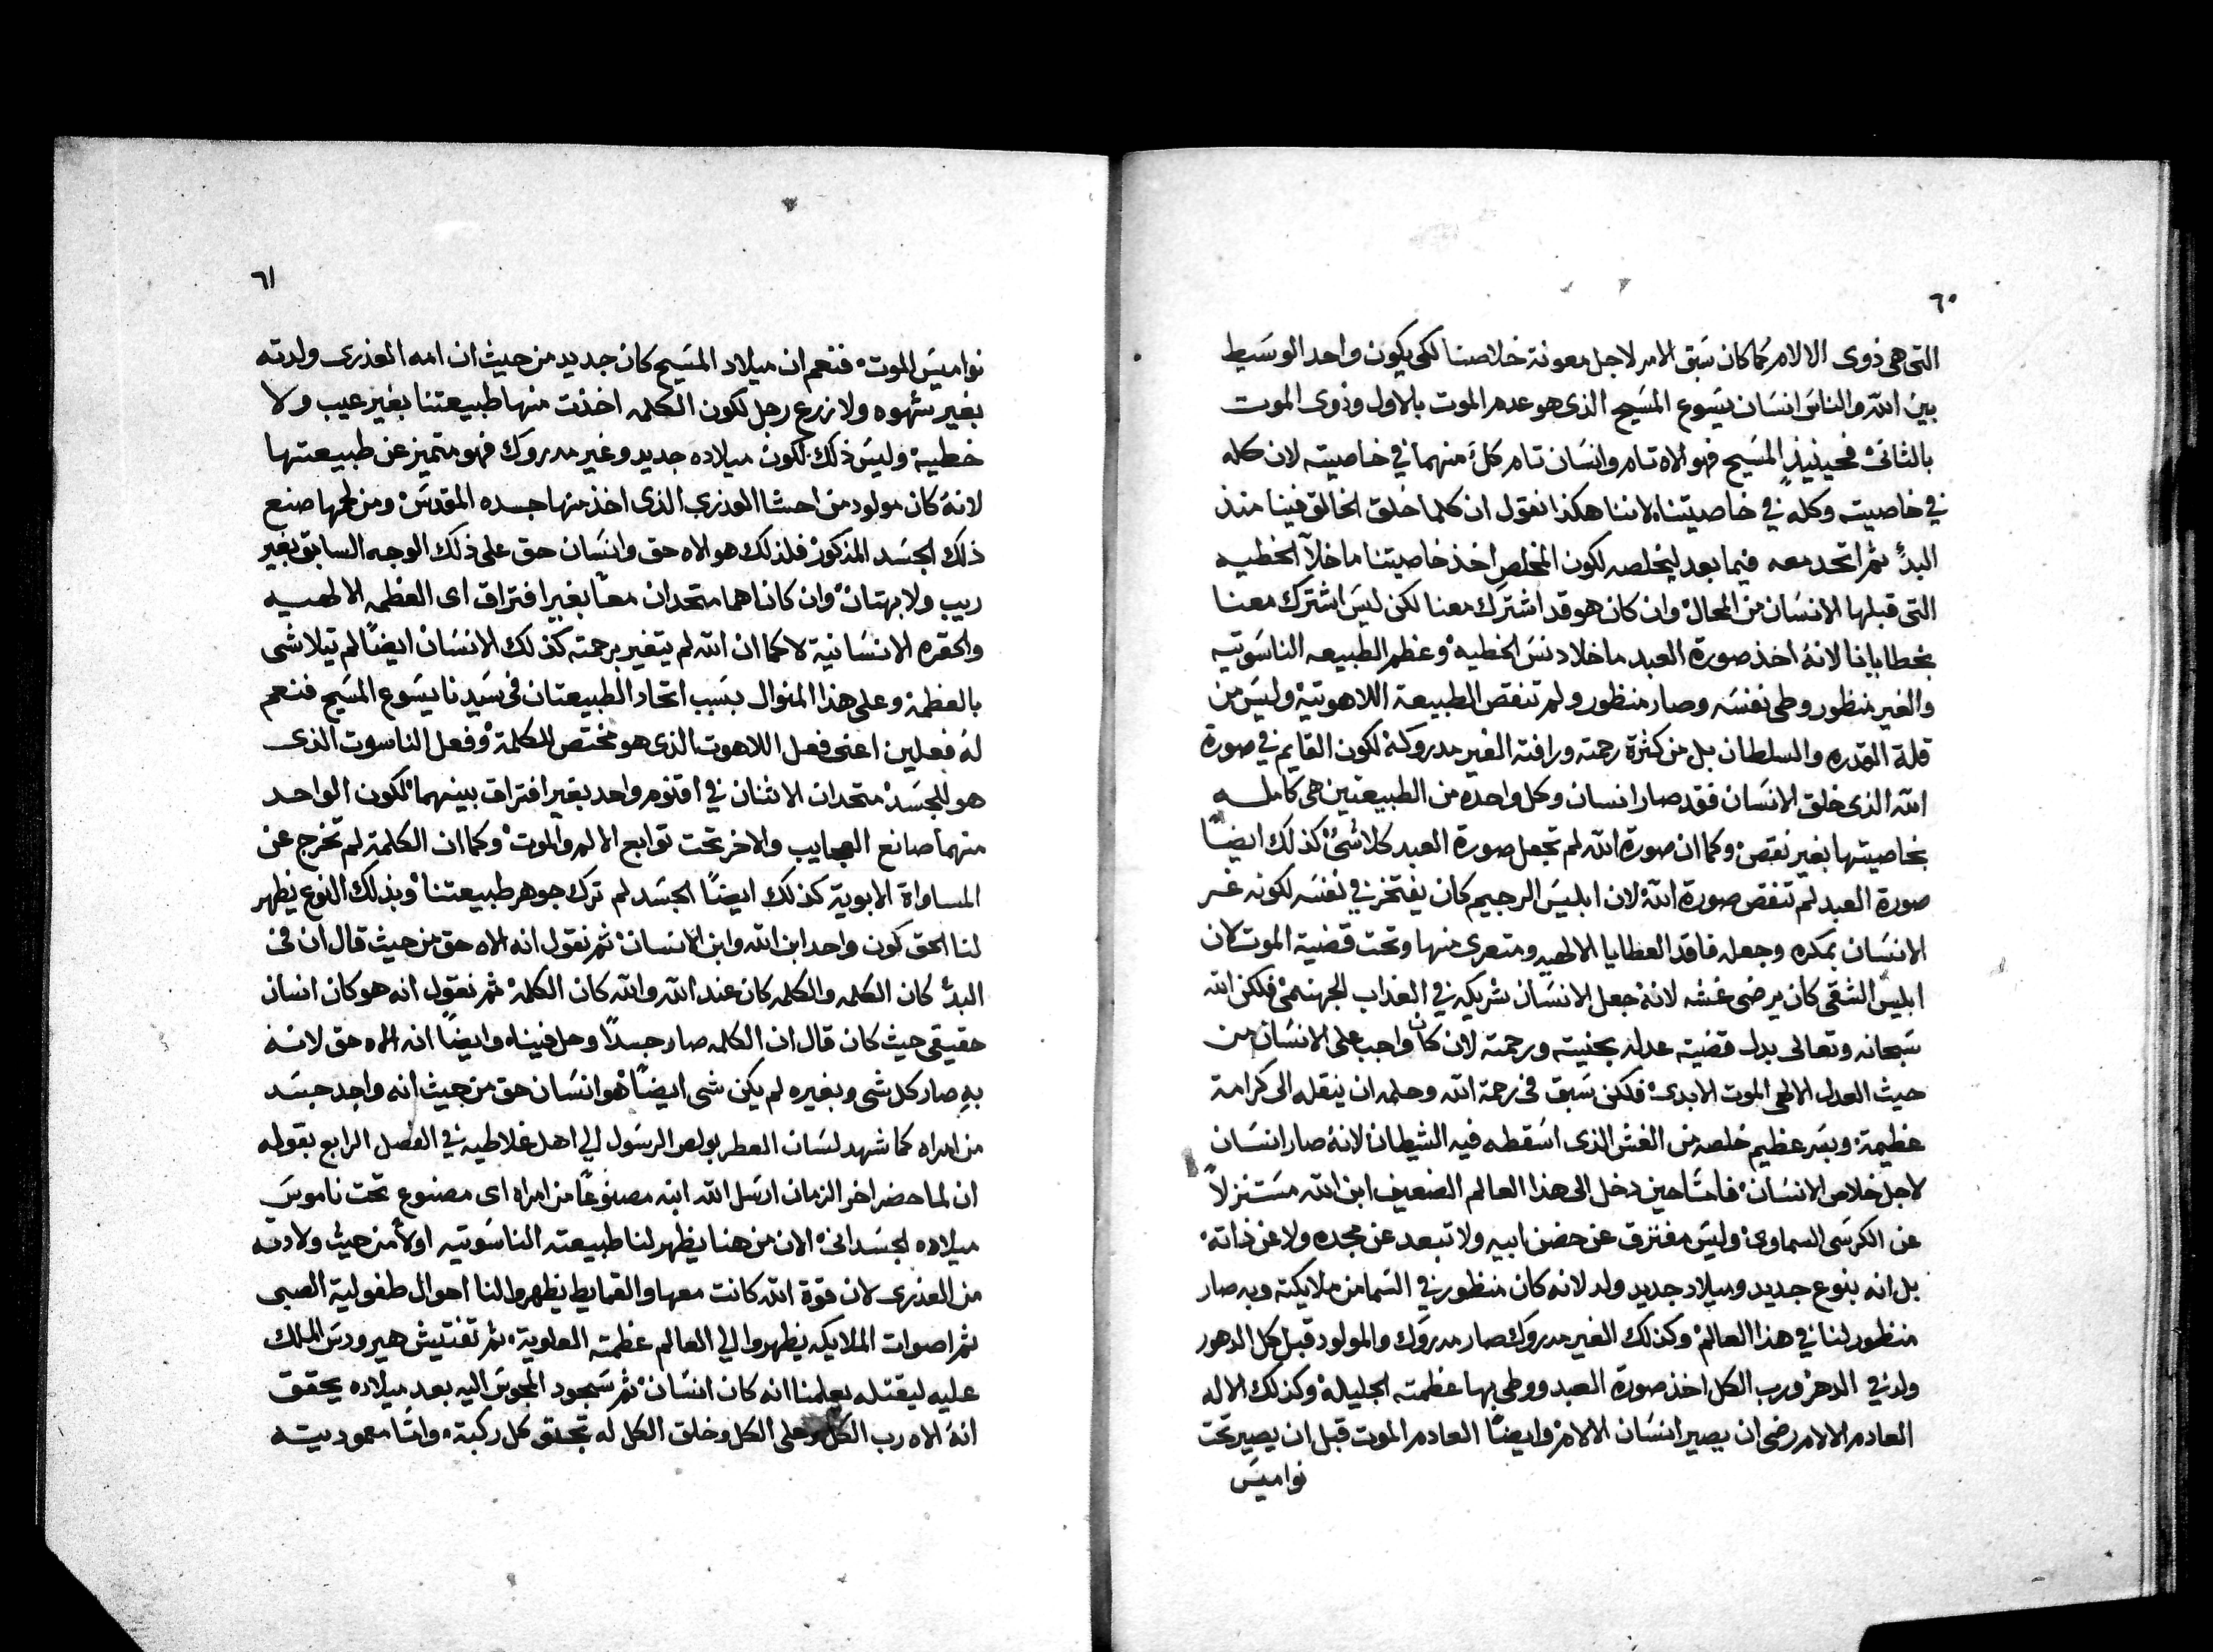 ٦٠
التى هى ذوى الالام كما كان سَبق الامر لاجل معونة خلاصنا لكى يكون واحد الوسَيط
بين الله والناس انسَان يسَوع المسَيح الذى هو عدم الموت بالاول وذوى الموت
بالثانى فحينيذٍ المسَيح فهو الاه تام وانسَان تام كلٌ منهما في خاصيته لان كله
في خاصيته وكله في خاصيتنا لاننا هكذا نقول ان كلما خلق الخالق فينا منذ
البدُ ثم اتحد معه فيما بعد ليخلصه لكون المخلص اخذ خاصيتنا ما خلآ الخطيه
التى قبلها الانسَان من المحال وان كان هو قد اشترَك معنا لكن ليسَ اشترَك معنا
بخطايانا لانهُ اخذ صورة العبد ما خلا دنسَ الخطيه وعظم الطبيعه الناسَوتيه
والغير منظور وطى نفسَه وصار منظور ولم تنقص الطبيعة اللاهوتية وليسَ من
قلة القدره والسلطان بل من كثرة رحمته ورافته الغير مدروكة لكون القايم في صورة
الله الذى خلق الانسَان فقد صار انسان وكل واحده من الطبيعتين هى كامله
بخاصيتها بغير نقص وكما ان صورة الله لم تجعل صورة العبد كلا شئ كذلك ايضاً
صورة العبد لم تنقص صورة الله لان ابليسَ الرجيم كان يفتخر في نفسَه لكونه غر
الانسَان بمكره وجعله فاقد العطايا الالهيه ومتعرى منها وتحت قضية الموت كان
ابليس الشقى كان يرضى غشه لانهُ جعل الانسَان شريكه في العذاب الجهنمى فلكن الله
سَبحانه وتعالى بدل قضية عدله بحنيته ورحمته لان كان واجب على الانسَان من
حيث العدل الالهى الموت الابدى فلكن سَبق فى رحمة الله وحلمه ان ينقله الى كرامة
عظيمة وبسَر عظيم خلصه من الغش الذى اسَقطه فيه الشيطان لانهُ صار انسَان
لاجل خلاص الانسَان فامثا حين دخل الى هذا العالم الضعيف ابن الله مسَتنزلاً
عن الكرسَى السماوى وليسَ مفترق عن حضن ابيه ولا تبعد عن مجده ولا عن ذاته
بل انه بنوع جديد وميلاد جديد ولد لانه كان منظور في السَما من ملايكته وبه صار
منظور لنا في هذا العالم وكذلك الغير مدروك صار مدروَك والمولود قبل كل الدهور
ولد في الدهر ورب الكل اخذ صورة العبد ووطى بها عظمته الجليلة وكذلك الاله
العادم الالام رضى ان يصير انسَان الالام وايضاً العادم الموت قبل ان يصير تحت
نواميسَ
٦١
نواميسَ الموت فنعم ان ميلاد المسَيح كان جديد من حيث ان امه العذرى ولدته
بغير شهوه ولا زرع رجل لكون الكلمه اخذت منها طبيعتنا بغير عيب ولا
خطية وليسَ ذلك لكون ميلاده جديد وغير مدروك فهو متميز عن طبيعتها
لانهُ كان مولود من احشا العذرى الذى اخذ منها جسده المقدسَ ومن لحمها صنع
ذلك الجسَد المذكور فلذلك هو الاه حق وانسَان حق على ذلك الوجه السابق بغير
ريب ولا بهتان وان كانا هما متحدان معاً بغير افتراق اى العظمه الالهيه
والحقره الانسَانية لا كما ان الله لم يتغير برحمته كذلك الانسَان ايضاً لم تيلاشى
بالعظمة وعلى هذا المنوال بسَبب اتحاد الطبيعتان فى سَيدنا يسَوع المسَيح فنعم
لهُ فعلين اعنى فعل اللاهوت الذى هو مختص للكلمة وفعل الناسوت الذى
هو للجسَد متحدان الاثنان في اقنوم واحد بغير افتراق بينهما لكون الواحد
منهما صانع العجايب والاخر تحت توابع الالم والموت وكما ان الكلمة لم تخرج عن
المساواة الابوية كذلك ايضاً الجسَد لم ترك جوهر طبيعتنا وبذلك النوع يظهر
لنا الحق كون واحد ابن الله وابن الانسَان ثم نقول انه الاه حق من حيث قال ان فى
البدُ كان الكلمه والكلمه كان عند الله والله كان الكلمة ثم نقول انه هو كان انسان
حقيقى حيث كان قال ان الكلمه صار جسداً وحل فيناه وايضاً انه الاه حق لانه
بهِ صار كل شى وبغيره لم يكن شى ايضاً هو انسَان حق من حيث انه واجد جسَد
من امراه كما شهد لسَان العطر بولص الرسَول الي اهل غلاطيه في الفصل الرابع بقوله
ان لما حضر اخر الزمان ارسَل الله ابنه مصنوعاً من امراه اى مصنوع تحت ناموسَ
ميلاده الجسَدانى الان من هنا يظهر لنا طبيعته الناسَوتيه اولاً من حيث ولادته
من العذرى لان قوة الله كانت معها والقمايط يظهروا لنا احوال طفولية الصبى
ثم اصوات الملايكه يظهروا الي العالم عظمته العلوية ثم تفتيش هيرودسَ الملك
عليه ليقتله يعلمنا انه كان انسَان ثم سَجود المجوسَ اليه بعد ميلاده يحقق
انهُ الاه رب الكل وعلى الكل وخلق الكل له تجثو كل ركبة وامّا معموديته